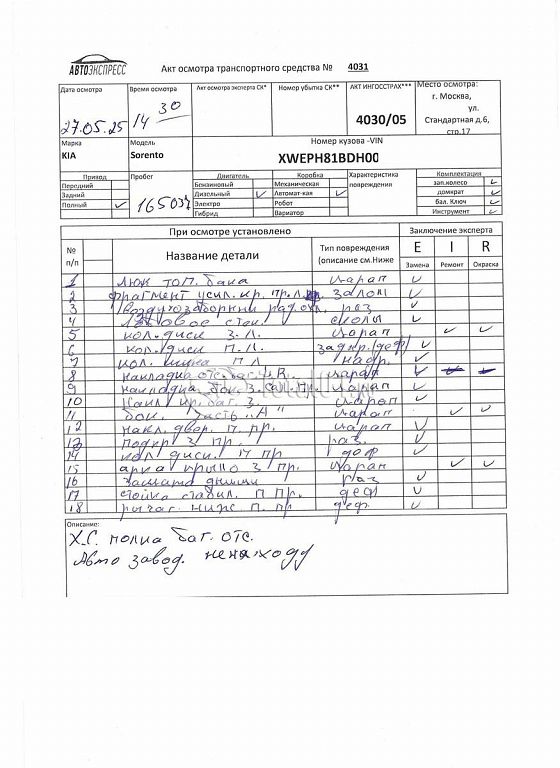 АВТОЭКСПРЕСС
Акт осмотра транспортного средства № 4031
Дата осмотра
27.05.25
Время осмотра
14 30
Акт осмотра эксперта СК*
Номер убытка СК**
АКТ ИНГОССТРАХ***
4030/05
Место осмотра:
г. Москва,
ул.
Стандартная д.6,
стр.17
Марка
KIA
Модель
Sorento
Номер кузова -VIN
XWEPH81BDH00
Привод
Передний
Задний
Полный ✓
Пробег
Двигатель
Бензиновый
Дизельный ✓
Электро
Гибрид
Коробка
Механическая
Автомат-кая ✓
Робот
Вариатор
Характеристика
повреждения
Комплектация
зап.колесо ✓
домкрат ✓
бал. Ключ ✓
Инструмент ✓
При осмотре установлено
Заключение эксперта
№
п/п
Название детали
Тип повреждения
(описание см.Ниже
E
I
R
Замена
Ремонт
Окраска
1 люк топ. бака царап ✓
2 фрагмент усил. кр. пр. залом ✓
3 воздухозаборник рад. раз ✓
4 стек. сколы ✓
5 кол. диск З. Л. царап ✓ ✓
6 кол. диск П. Л. задир./деф ✓
7 кол. шина П Л надр. ✓
8 накладка царап ✓
9 накладка бок. З. пр. царап ✓
10 кр. баг. З. царап ✓
11 бок. часть "А" царап ✓ ✓
12 накл. двер. П. пр. царап ✓
13 подкр З пр. раз. ✓
14 кол диск. П пр деф ✓
15 арка крыло З пр. царап ✓ ✓
16 защита днища раз ✓
17 стойка стабил. П пр. деф ✓
18 рычаг. ниж. П. пр деф. ✓
Описание:
Х.С. полка баг. отс.
Авто завод. не на ходу